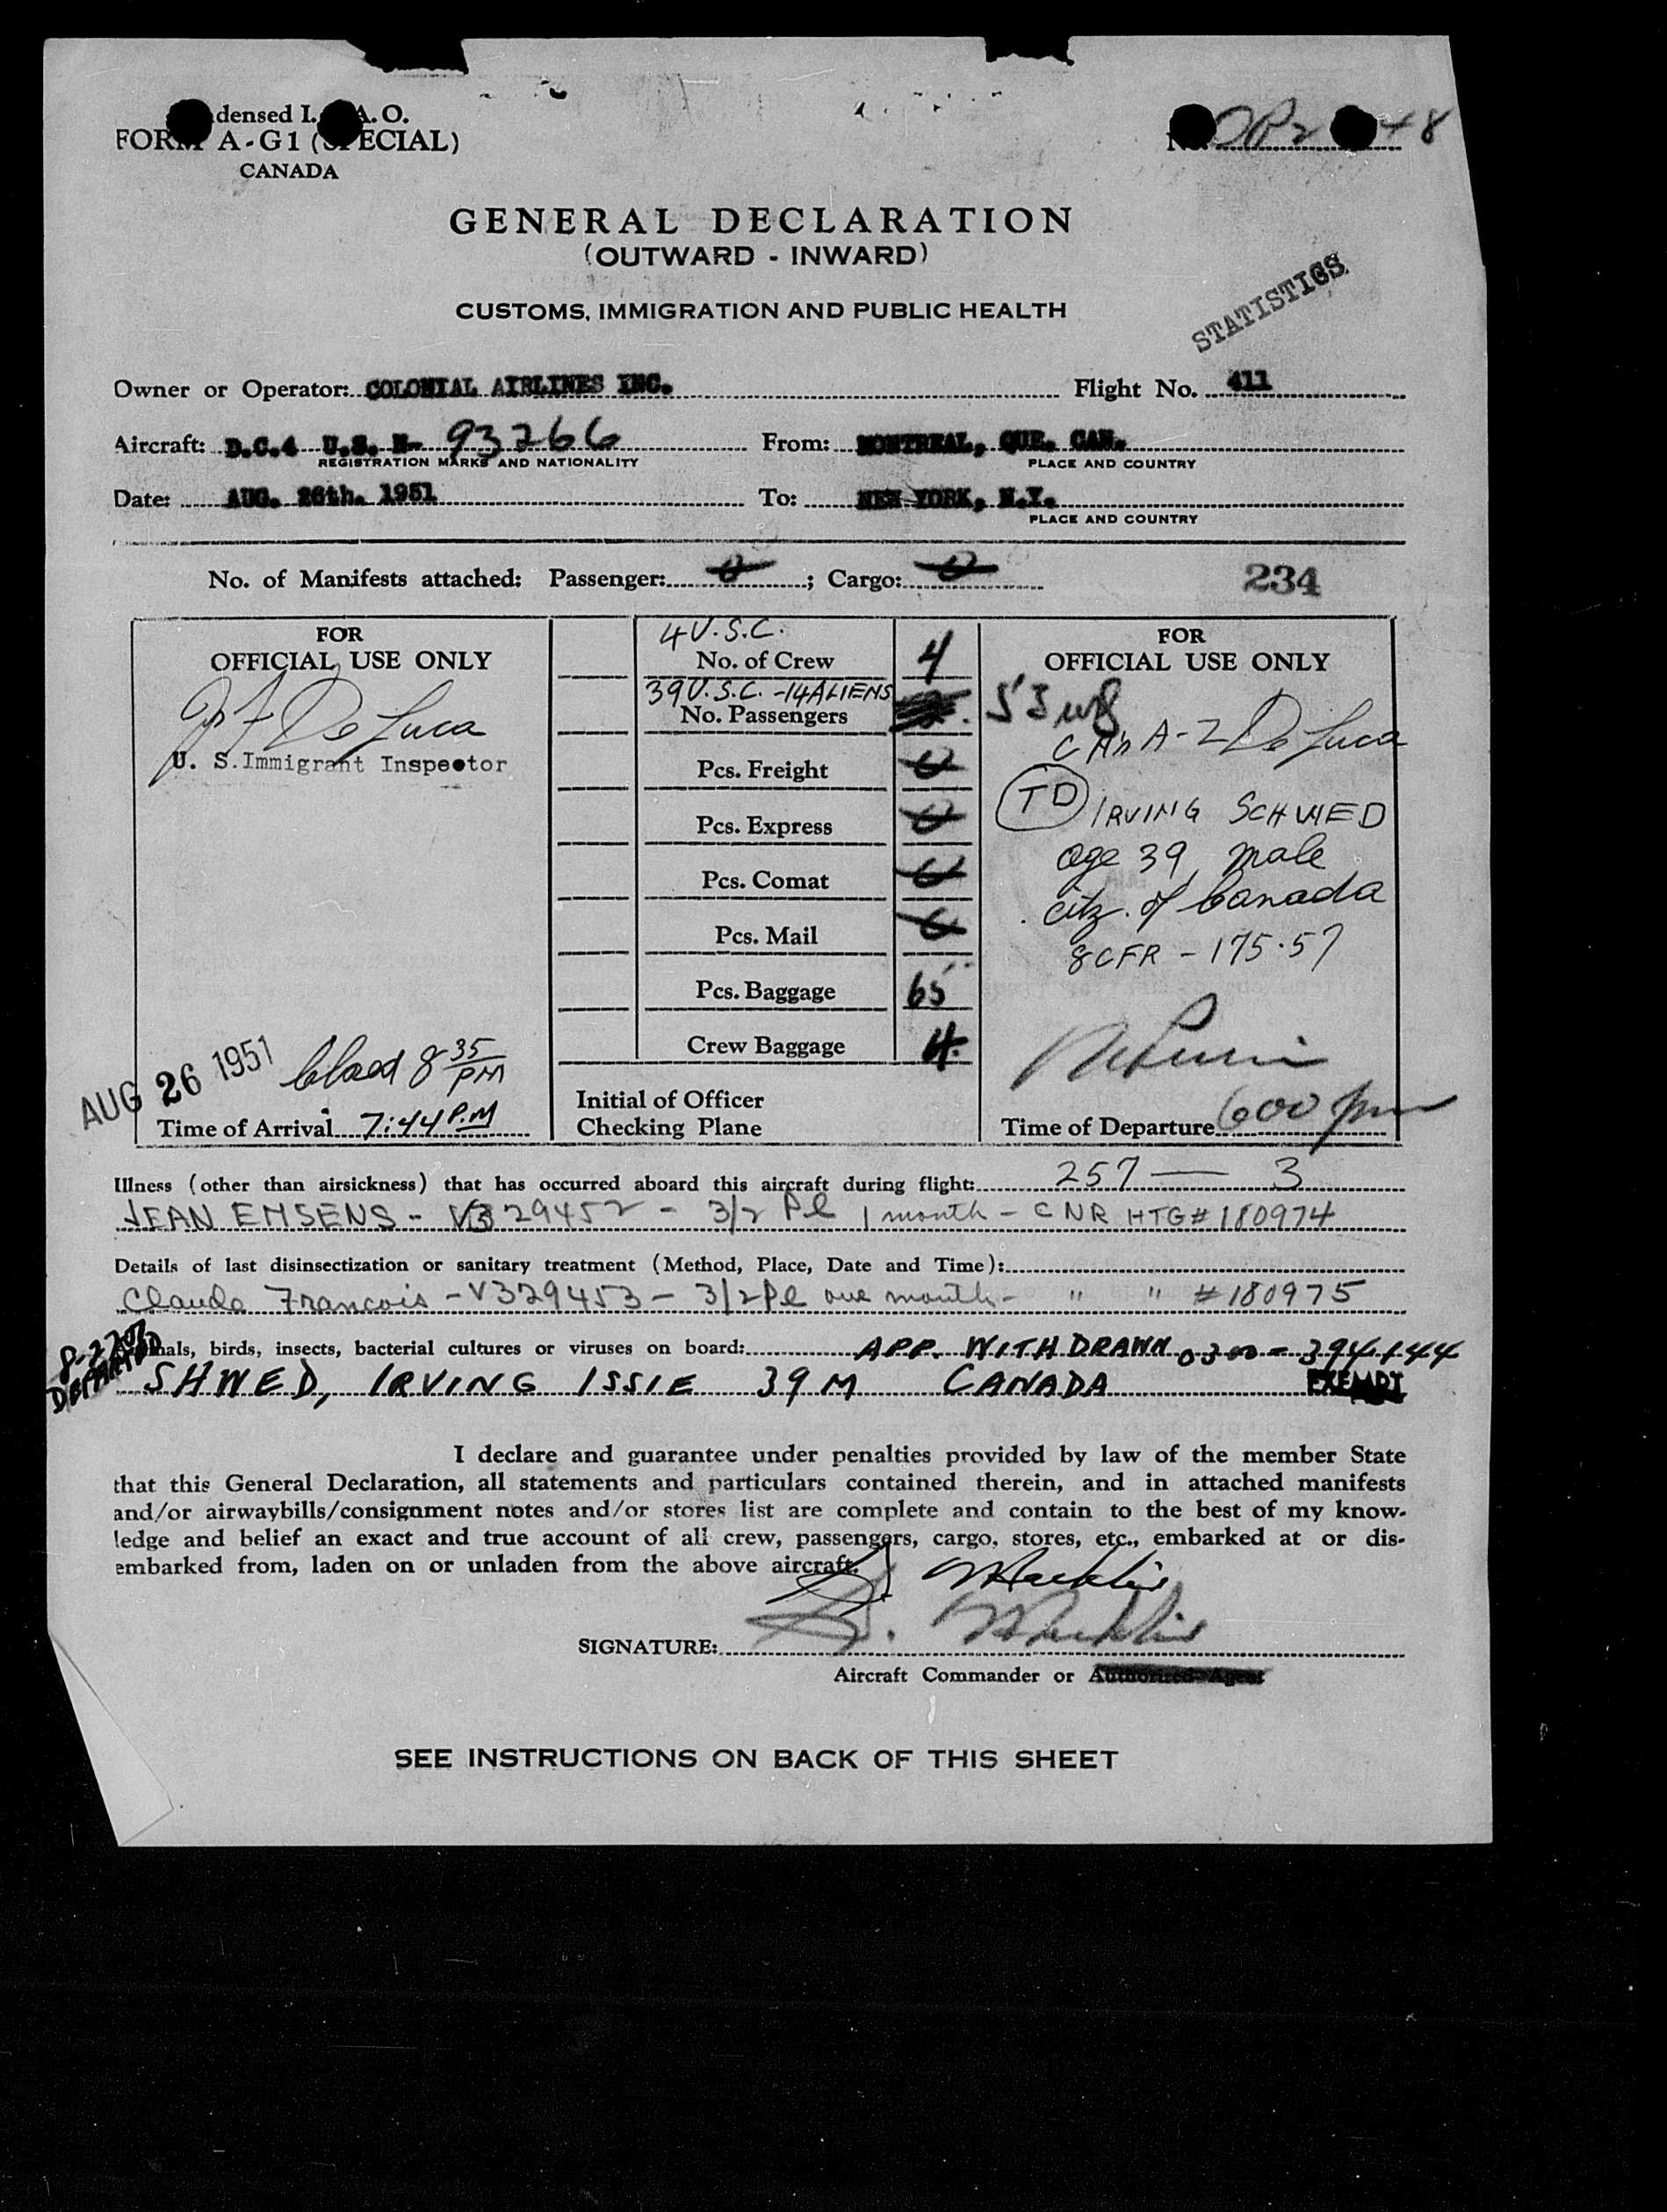 densed I. A.O.
FORM A-G1 (SPECIAL)
CANADA
No.
48
GENERAL DECLARATION
(OUTWARD - INWARD)
CUSTOMS, IMMIGRATION AND PUBLIC HEALTH
STATISTICS
Owner or Operator: COLONIAL AIRLINES INC. Flight No. 411
Aircraft: D.C.4 U.S. N- 93266 From: MONTREAL, QUE. CAN.
REGISTRATION MARKS AND NATIONALITY PLACE AND COUNTRY
Date: AUG. 26th. 1951 To: NEW YORK, N.Y.
PLACE AND COUNTRY
No. of Manifests attached: Passenger: 0; Cargo: 0
234
FOR
OFFICIAL USE ONLY
De Luca
U. S. Immigrant Inspector
AUG 26 1951
8 35 PM
Time of Arrival 7:44 P.M
4 U.S.C.
No. of Crew 4
39 U.S.C. - 14 ALIENS
No. Passengers
Pcs. Freight 0
Pcs. Express 0
Pcs. Comat 0
Pcs. Mail 0
Pcs. Baggage 65
Crew Baggage 4
Initial of Officer
Checking Plane
FOR
OFFICIAL USE ONLY
A-2 De Luca
TD IRVING SCHWED
age 39, male
citz. of Canada
8CFR - 175.57
Time of Departure 600 pm
Illness (other than airsickness) that has occurred aboard this aircraft during flight: 257 — 3
JEAN EMSENS - V329452 - 3/2 Pl 1 month - CNR HTG# 180974
Details of last disinsectization or sanitary treatment (Method, Place, Date and Time):
Claude Francois - V329453 - 3/2 Pl one month - " " # 180975
DEPARTED
Animals, birds, insects, bacterial cultures or viruses on board: APP. WITHDRAWN 0300 - 394144
SHWED, IRVING ISSIE 39 M CANADA EXEMPT
I declare and guarantee under penalties provided by law of the member State
that this General Declaration, all statements and particulars contained therein, and in attached manifests
and/or airwaybills/consignment notes and/or stores list are complete and contain to the best of my know-
ledge and belief an exact and true account of all crew, passengers, cargo, stores, etc., embarked at or dis-
embarked from, laden on or unladen from the above aircraft.
SIGNATURE:
Aircraft Commander or Authorized Agent
SEE INSTRUCTIONS ON BACK OF THIS SHEET